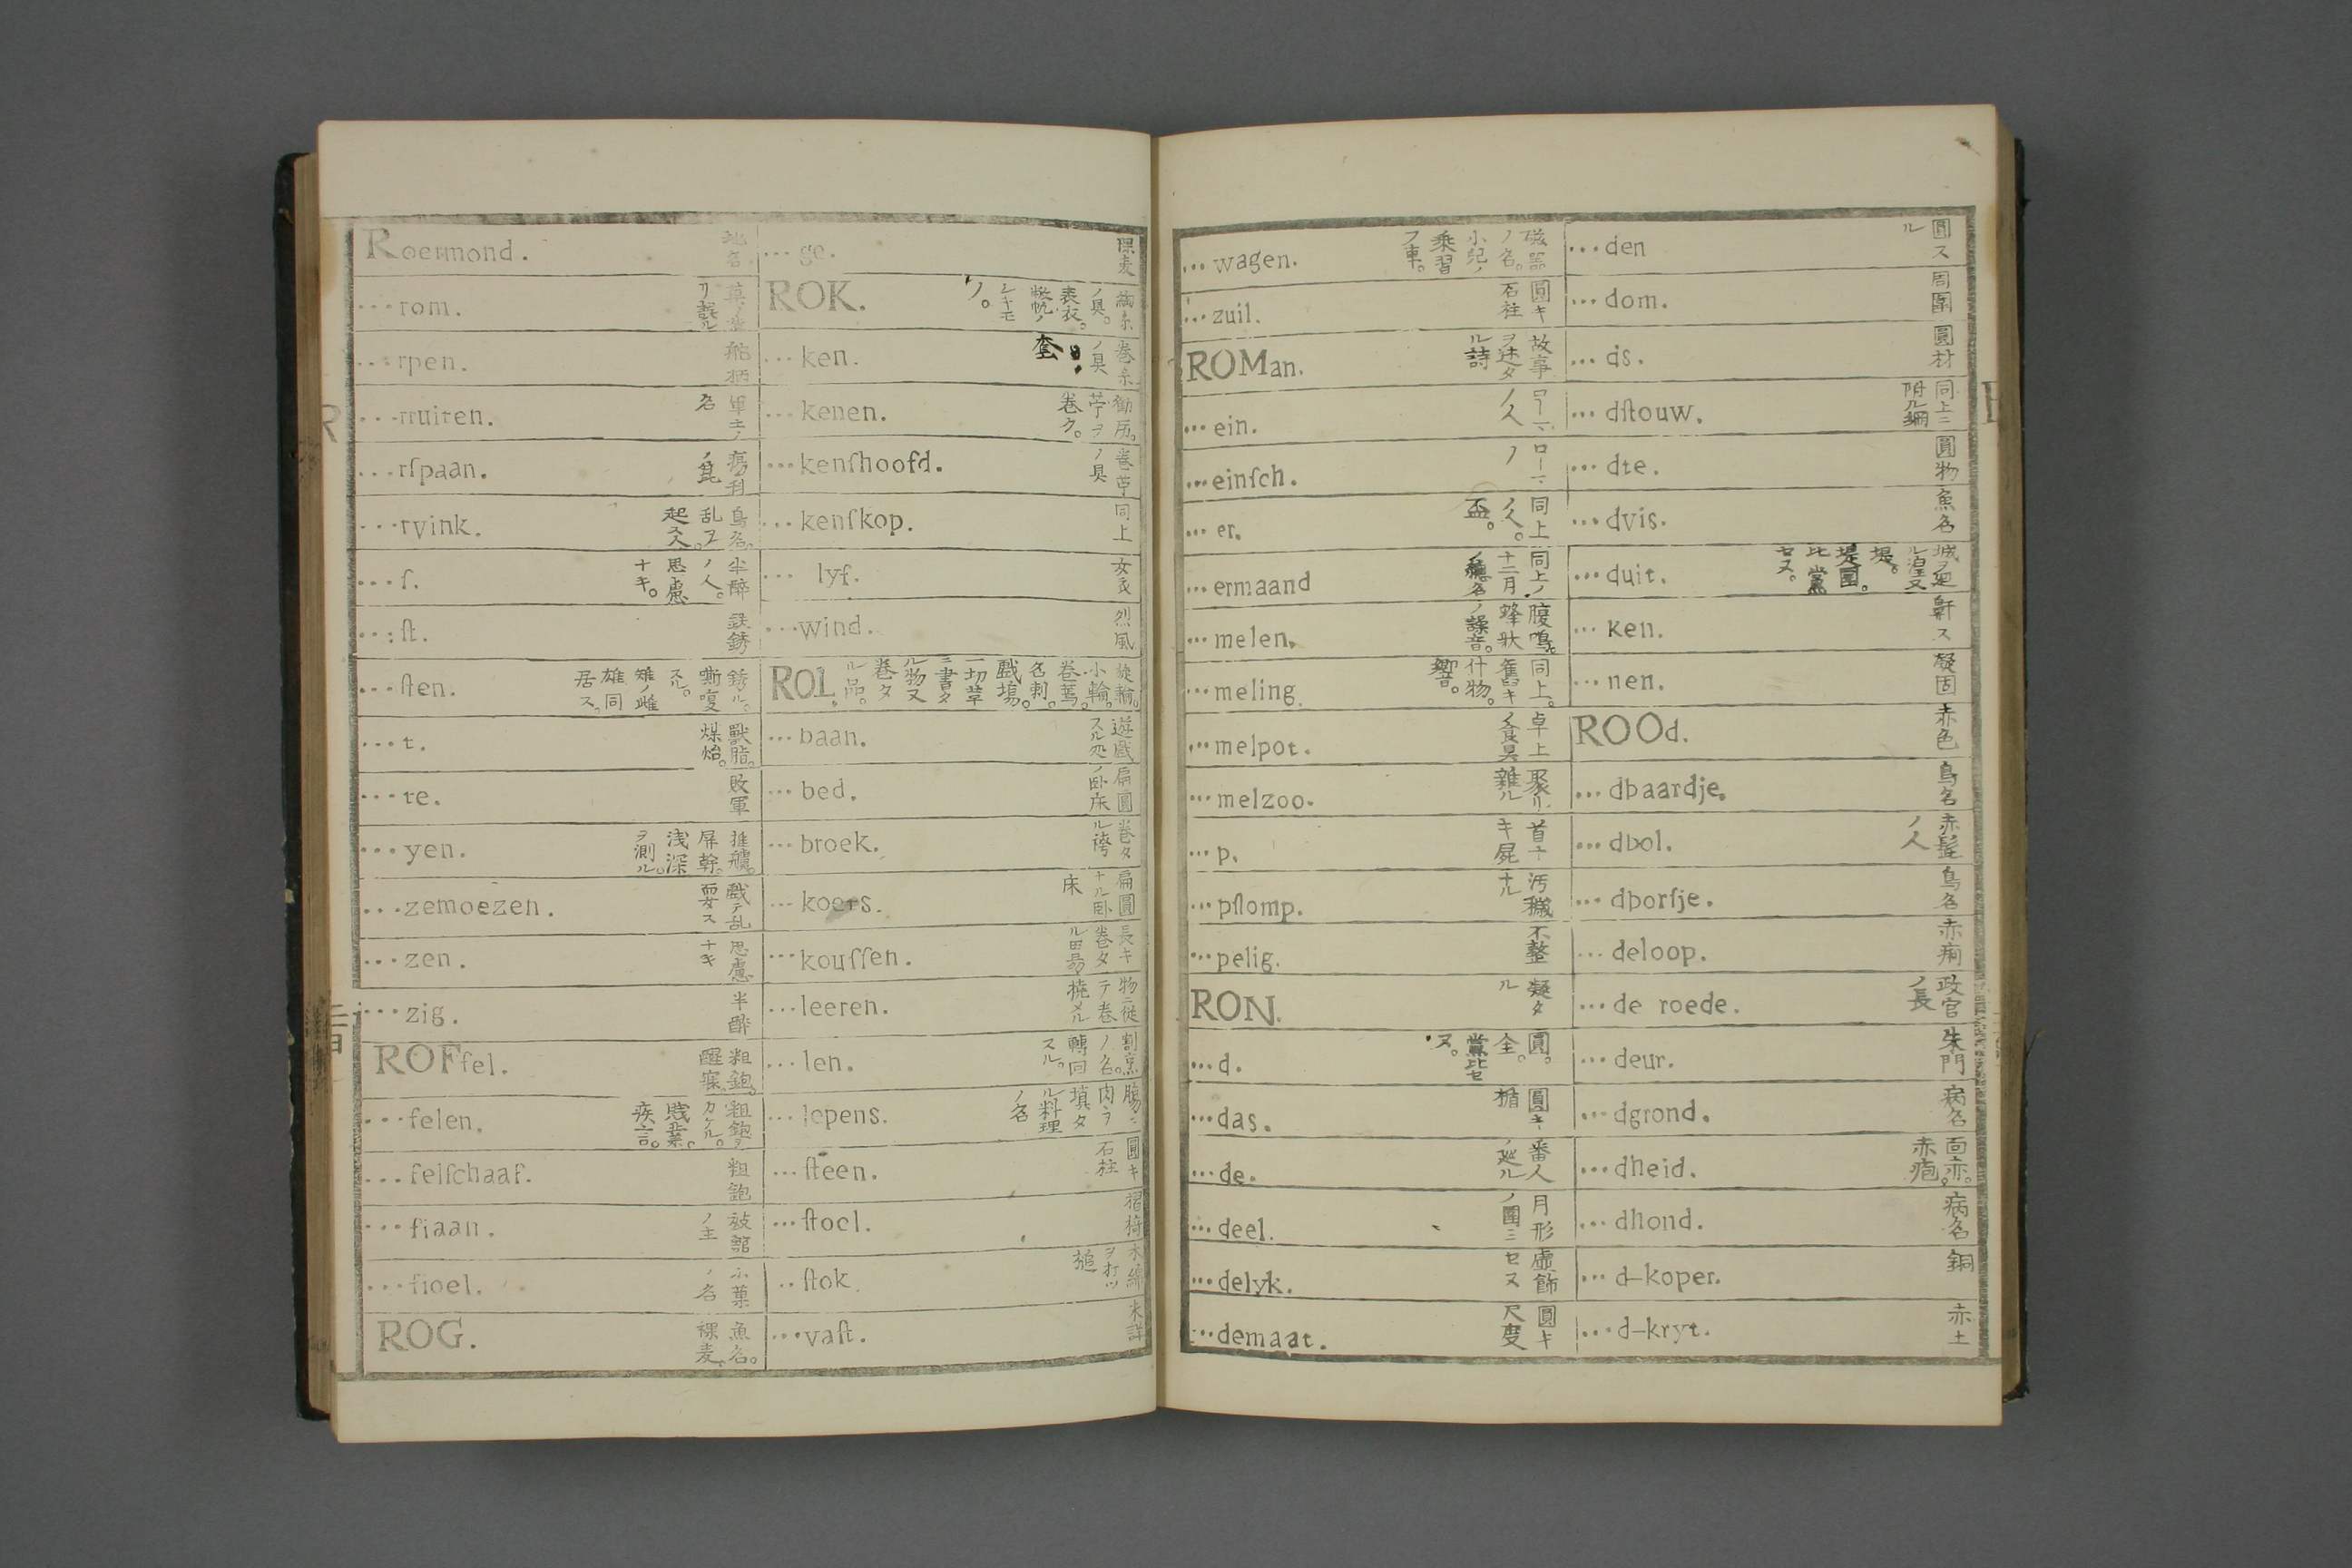 Roermond. 地名。
...rom.
...rpen.
...rruiten.
...rſpaan.
...rvink. 鳥名。乱ヲ起ス人。
...ſ. 半酔ノ人。思慮ナキ。
...ſt. 鉄銹
...ſten. 銹ル。嘶嗄スル。雉ノ雌雄同居ス。
...t. 獸脂。煤炲。
...te. 敗軍
...yen. 浅深ヲ測ル。
...zemoezen. 戲テ乱耍ス
...zen. 思慮ナキ
...zig. 半酔
ROFfel. 粗鉋。
...felen. 粗鉋ヲカケル。賤業。疾言。
...felſchaaf. 粗鉋
...fiaan.
...fioel.
ROG. 魚名。裸麦。
...ge. 裸麦
ROK. 表衣。
...ken. 巻糸ノ具 套
...kenen. 巻ク。
...kenſhoofd. ノ具
...kenſkop. 同上
... lyf. 女衣
...wind. 烈風
ROL. 旋輪。小輪。巻蔫。名刺。戲場。一切草ニ書タル物又巻タル品。
...baan. 遊戲スル処
...bed. 扁圓ノ卧床
...broek. 巻タル袴
...koers. 扁圓ナル卧床
...kouſſen. 長キ巻タル
...leeren. 物ニ従テ巻撓メル
...len. 割烹ノ名。轉回スル。
...lepens. 腸ニ肉ヲ填タル料理ノ名
...ſteen. 圓キ石柱
...ſtoel. 摺椅
..ſtok. 木綿ヲ打ツ槌
...vaſt. 未詳
...wagen. 磁器ノ名。小児ノ乗習フ車。
...zuil. 圓キ石柱
ROMan. 故事ヲ述タル詩
...ein. ローマノ人
...einſch. ローマノ
...er. 同上ノ人。盃。
...ermaand 同上ノ十二月ノ
...melen. 腹鳴ル。蜂状ノ譟音。
...meling. 同上。舊キ什物。響。
...melpot. 卓上ノ食具
...melzoo. 聚リ雑ル
...p. 首ナキ屍
...pſlomp. 汚穢ナル
...pelig. 不整
RON. 凝タル
...d. 圓。全。
...das. 圓キ楯
...de. 番人ノ巡ル
...deel. 月形ノ圍ミ
...delyk. 虚飾セヌ
...demaat. 圓キ尺度
...den 圓スル
...dom. 周圍
...ds. 圓材
...dſtouw. 同上ニ附ル綱
...dte. 圓物
...dvis. 魚名
...duit. 城ヲ廻ル湟又堤。
...ken. 鼾ス
...nen. 凝固
ROOd. 赤色
...dbaardje. 鳥名
...dbol. 赤髭ノ人
...dborſje. 鳥名
...deloop. 赤痢
...de roede. 政官ノ長
...deur. 朱門
...dgrond. 病名
...dheid. 面赤。赤疱。
...dhond. 病名
...d-koper. 銅
...d-kryt. 赤土